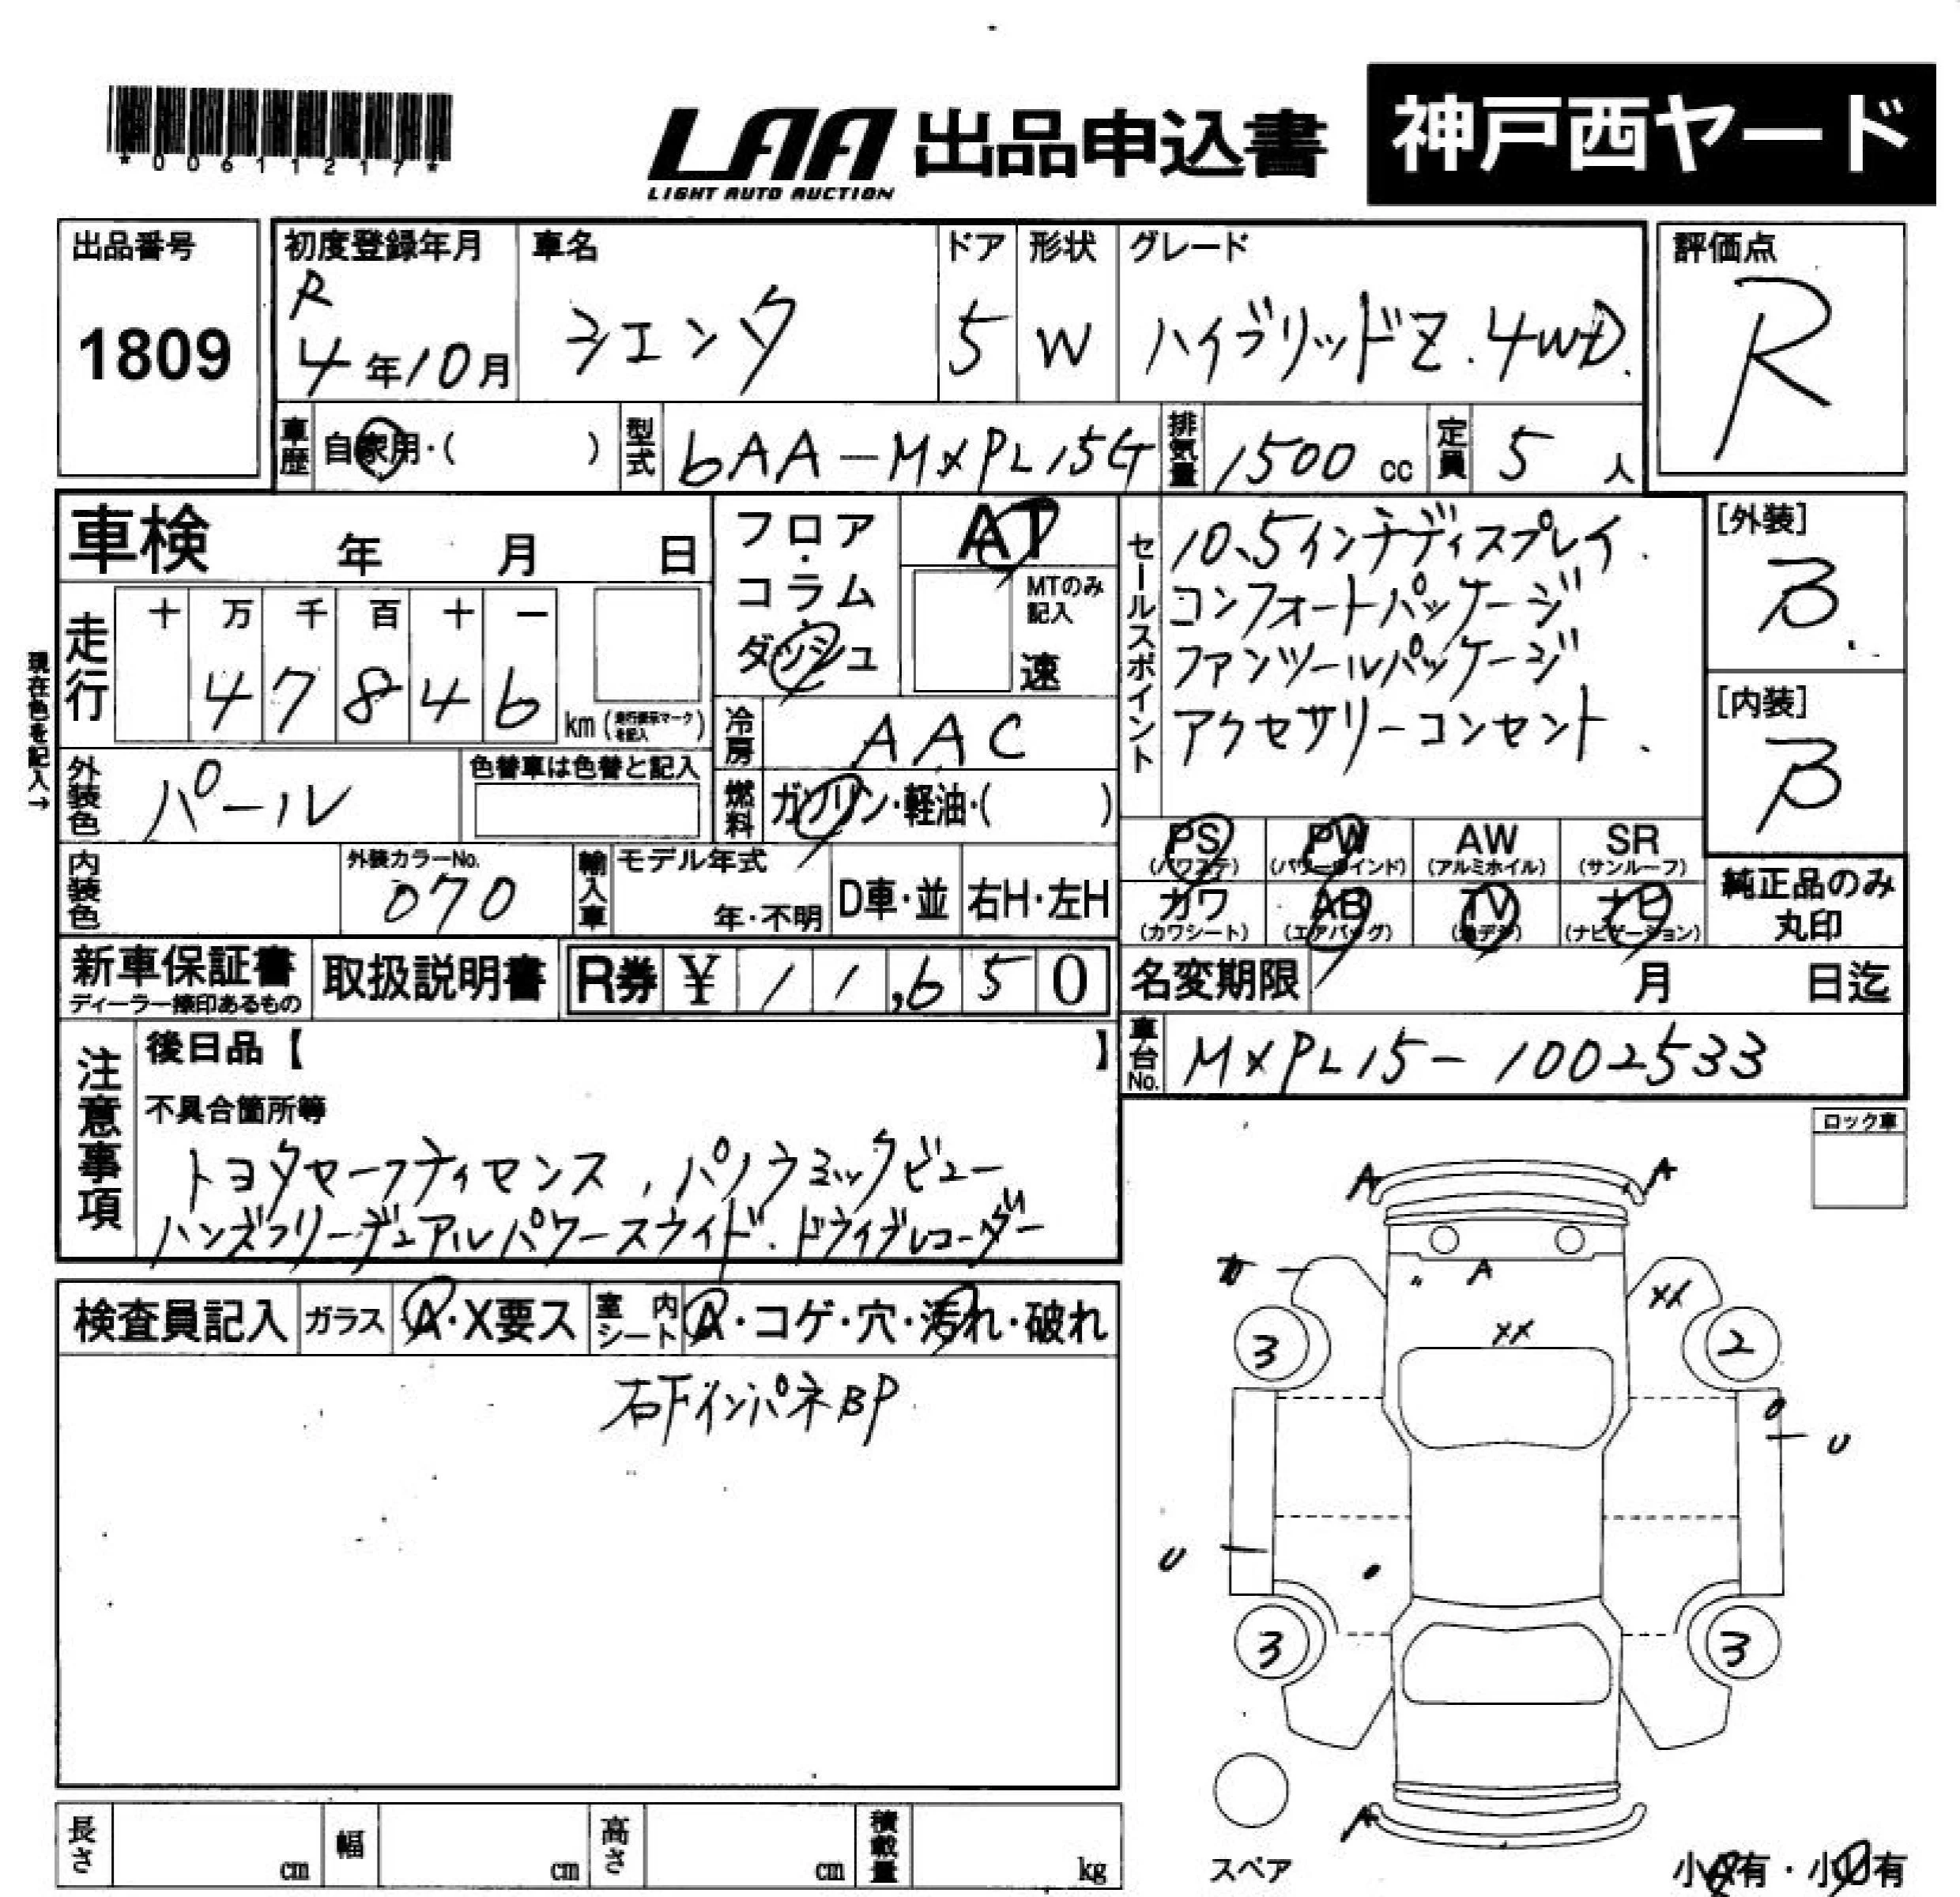 *00611217*
LAA
LIGHT AUTO AUCTION
出品申込書
神戸西ヤード
出品番号
1809
初度登録年月
R
4年10月
車名
シエンタ
ドア
5
形状
W
グレード
ハイブリッドZ.4WD.
評価点
R
車歴
自家用・( )
型式
6AA-MXPL15G
排気量
1500 cc
定員
5 人
車検 年 月 日
フロア・
コラム・
ダッシュ
AT
MTのみ
記入
速
セールスポイント
10.5インチディスプレイ.
コンフォートパッケージ
ファンツールパッケージ
アクセサリーコンセント.
[外装]
B.
[内装]
B
現在色を記入→
走行
十 万 千 百 十 一
4 7 8 4 6
km(走行表示マークを記入)
冷房
AAC
外装色
パール
色替車は色替と記入
燃料
ガソリン・軽油・( )
PS
(パワステ)
PW
(パワーウインド)
AW
(アルミホイル)
SR
(サンルーフ)
カワ
(カワシート)
AB
(エアバッグ)
TV
(地デジ)
ナビ
(ナビゲーション)
純正品のみ
丸印
内装色
外装カラーNo.
070
輸入車
モデル年式
年・不明
D車・並
右H・左H
新車保証書
ディーラー捺印あるもの
取扱説明書
R券 ¥ 11,650
名変期限 月 日迄
車台No.
MXPL15-1002533
注意事項
後日品【 】
不具合箇所等
トヨタセーフティセンス,パノラミックビュー
ハンズフリーデュアルパワースライド.ドライブレコーダー
ロック車
検査員記入
ガラス
A・X要ス
室内シート
A・コゲ・穴・汚れ・破れ
右下インパネBP
A A
A
XX
XX
3 2
U
U
3 3
A
スペア
長さ cm
幅 cm
高さ cm
積載量 kg
小A有・小U有